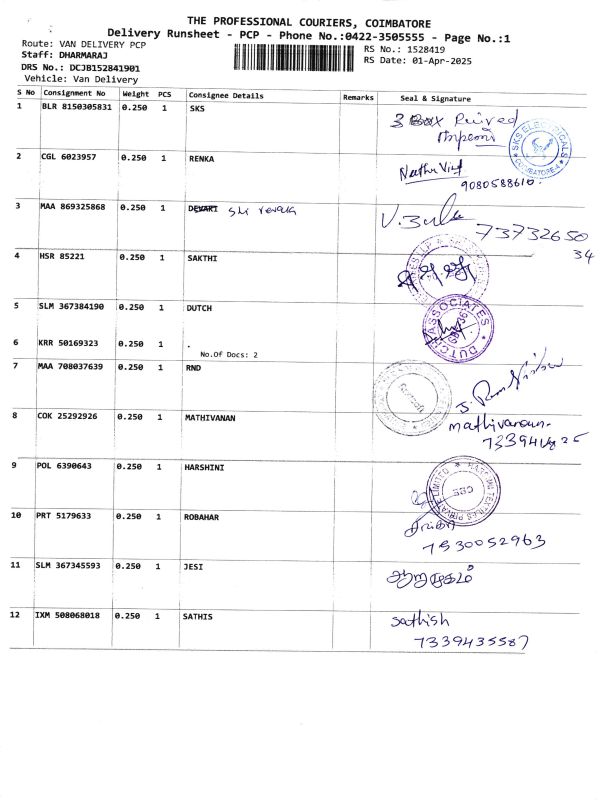 THE PROFESSIONAL COURIERS, COIMBATORE
Delivery Runsheet - PCP - Phone No.:0422-3505555 - Page No.:1
Route: VAN DELIVERY PCP
RS No.: 1528419
Staff: DHARMARAJ
RS Date: 01-Apr-2025
DRS No.: DCJB152841901
Vehicle: Van Delivery
S No Consignment No Weight PCS Consignee Details Remarks Seal & Signature
1 BLR 8150305831 0.250 1 SKS 3 Box
SKS ELECTRICALS COIMBATORE-4
2 CGL 6023957 0.250 1 RENKA
9080588610.
3 MAA 869325868 0.250 1 DEVAKI
73732650
34
4 HSR 85221 0.250 1 SAKTHI
5 SLM 367384190 0.250 1 DUTCH
DUTCH ASSOCIATES
6 KRR 50169323 0.250 1 .
No.Of Docs: 2
7 MAA 708037639 0.250 1 RND
8 COK 25292926 0.250 1 MATHIVANAN mathivanan.
9 POL 6390643 0.250 1 HARSHINI
TEXTILES PRIVATE LIMITED
CBE
10 PRT 5179633 0.250 1 ROBAHAR
7530052963
11 SLM 367345593 0.250 1 JESI ஆறுமுகம்
12 IXM 508068018 0.250 1 SATHIS sathish
7339435587